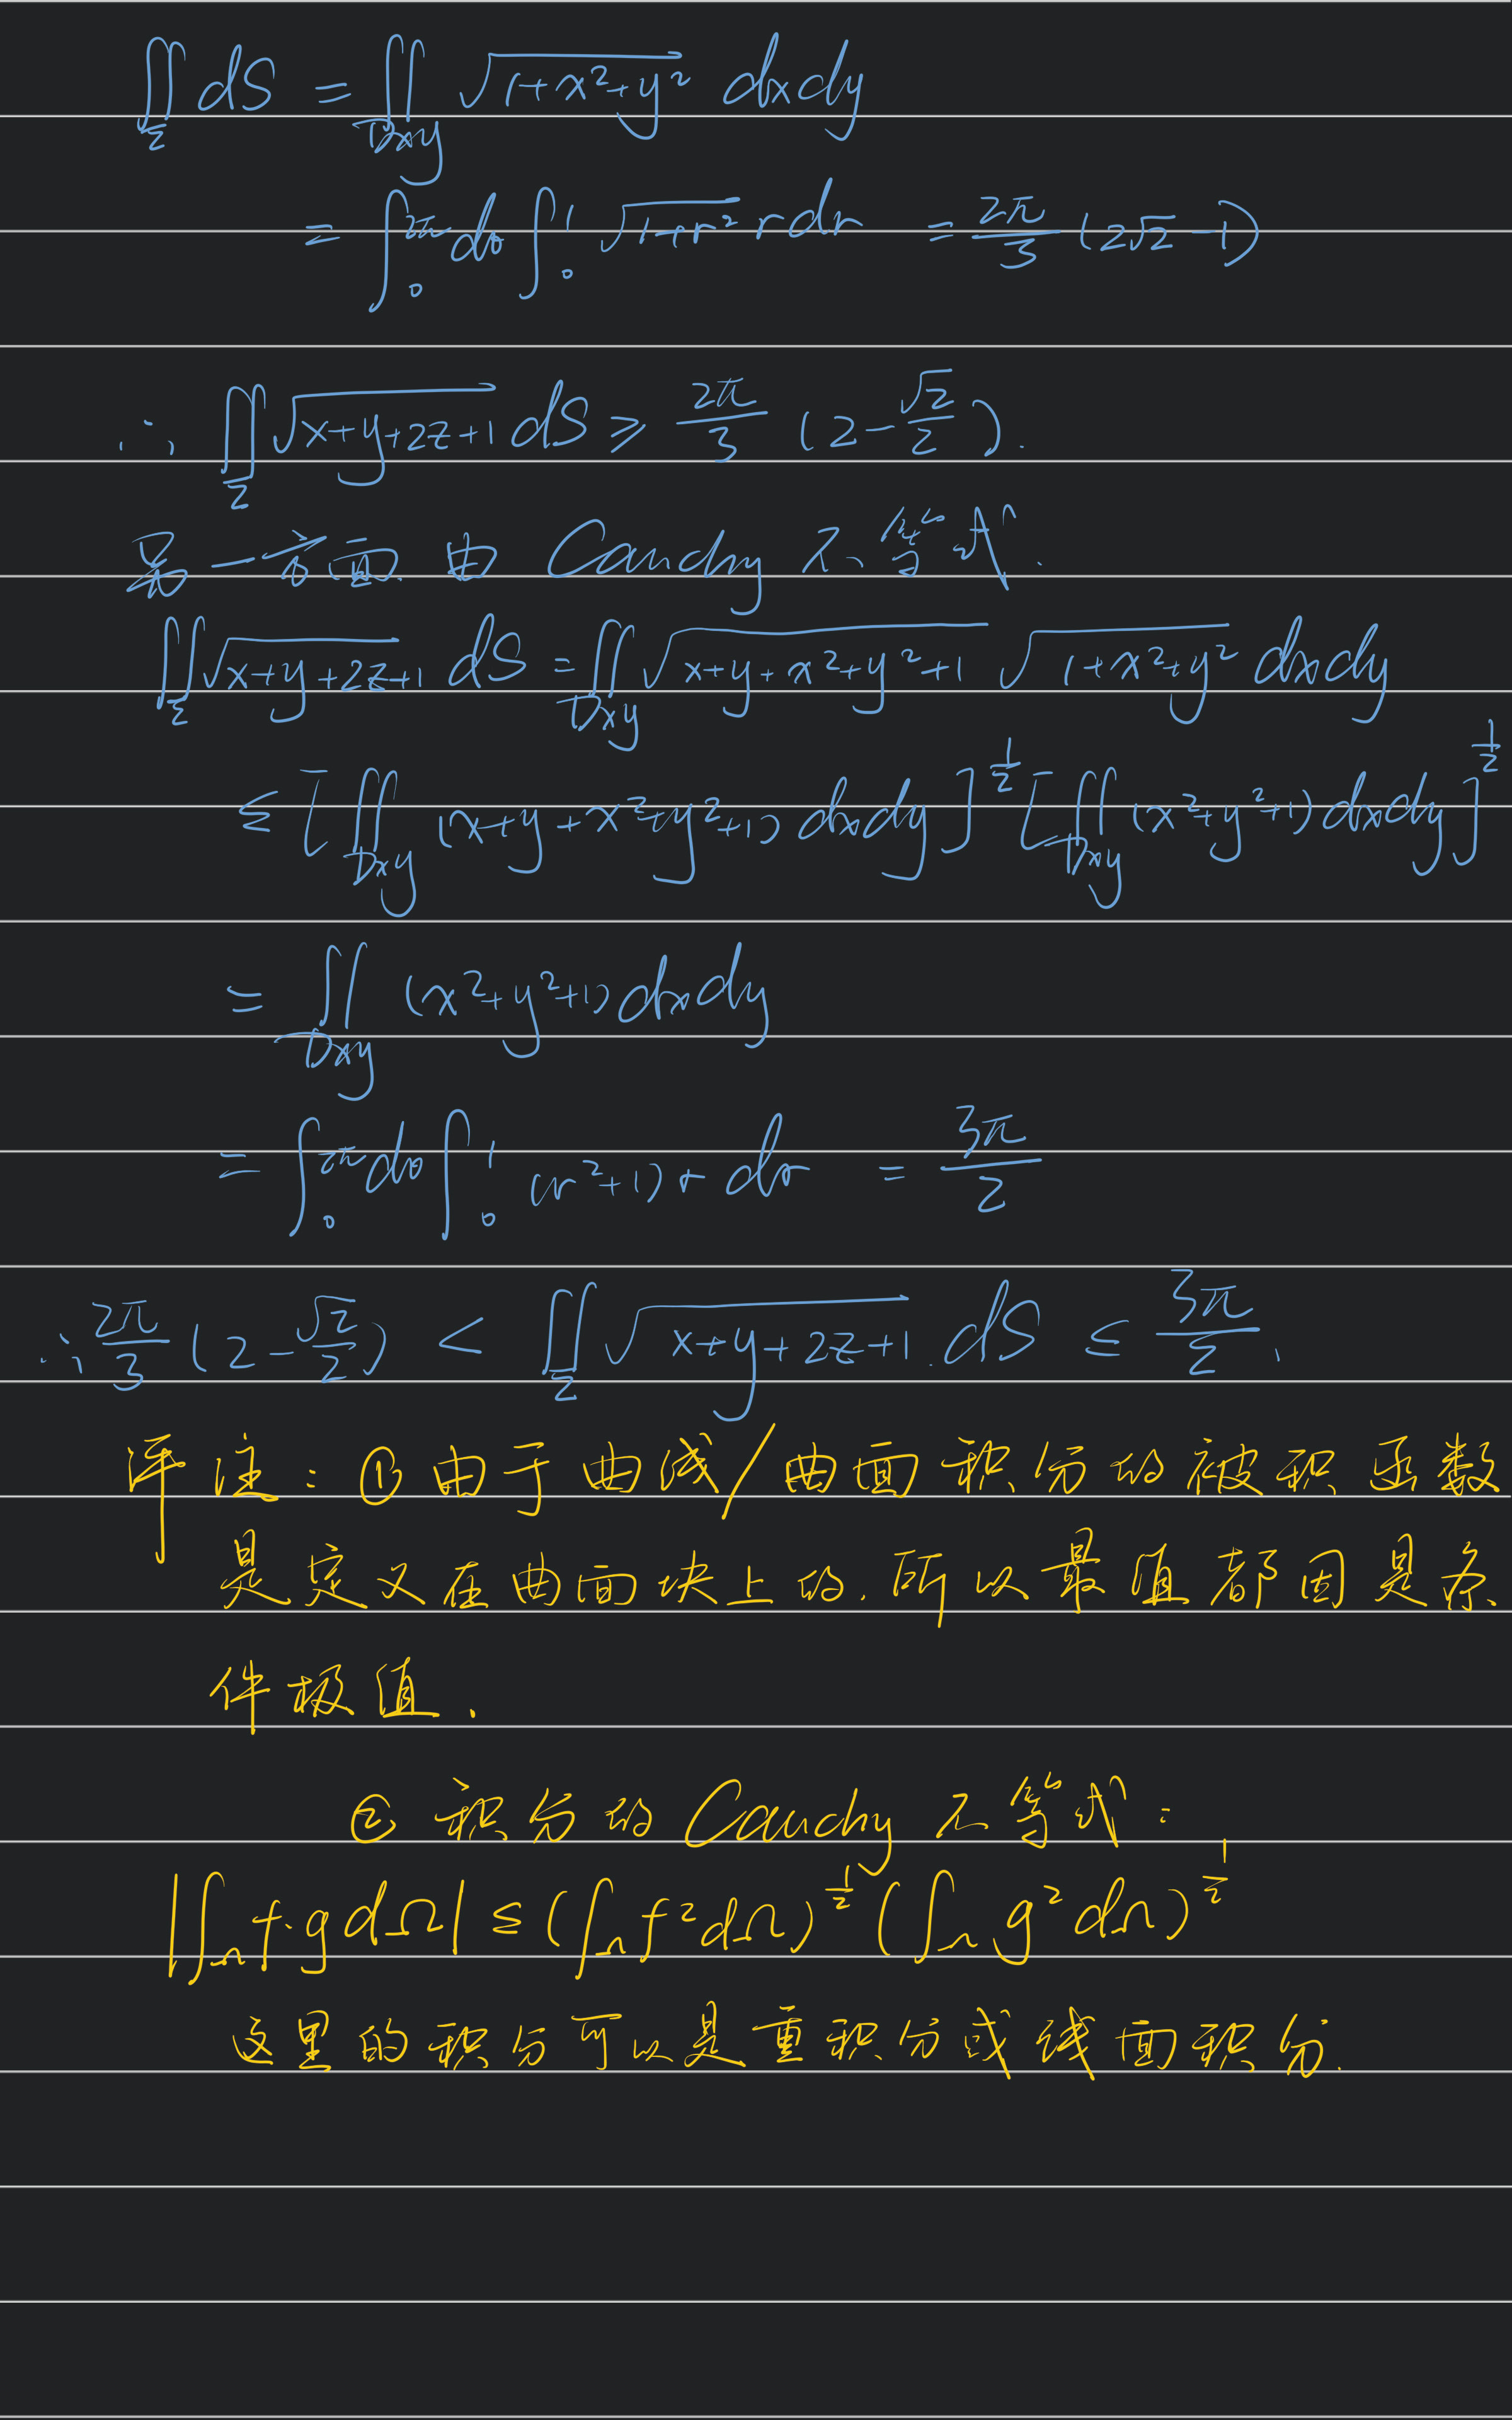 ∬_Σ dS = ∬_{Dxy} √(1+x²+y²) dxdy
= ∫₀^{2π} dθ ∫₀¹ √(1+r²) r dr = 2π/3 (2√2 − 1)
∴ ∬_Σ √(x+y+2z+1) dS ≥ 2π/3 (2 − √2/2).
另一方面,由 Cauchy 不等式.
∬_Σ √(x+y+2z+1) dS = ∬_{Dxy} √(x+y+x²+y²+1) √(1+x²+y²) dxdy
≤ [∬_{Dxy} (x+y+x²+y²+1) dxdy]^{1/2} [∬_{Dxy} (x²+y²+1) dxdy]^{1/2}
= ∬_{Dxy} (x²+y²+1) dxdy
= ∫₀^{2π} dθ ∫₀¹ (r²+1) r dr = 3π/2
∴ 2π/3 (2 − √2/2) < ∬_Σ √(x+y+2z+1) dS ≤ 3π/2.
评注:① 由于曲线/曲面积分的被积函数
是定义在曲面块上的.所以最值都同是条
件极值.
② 积分的 Cauchy 不等式:
|∫_Ω f·g dΩ| ≤ (∫_Ω f² dΩ)^{1/2} (∫_Ω g² dΩ)^{1/2}
这里的积分可以是重积分或线面积分.